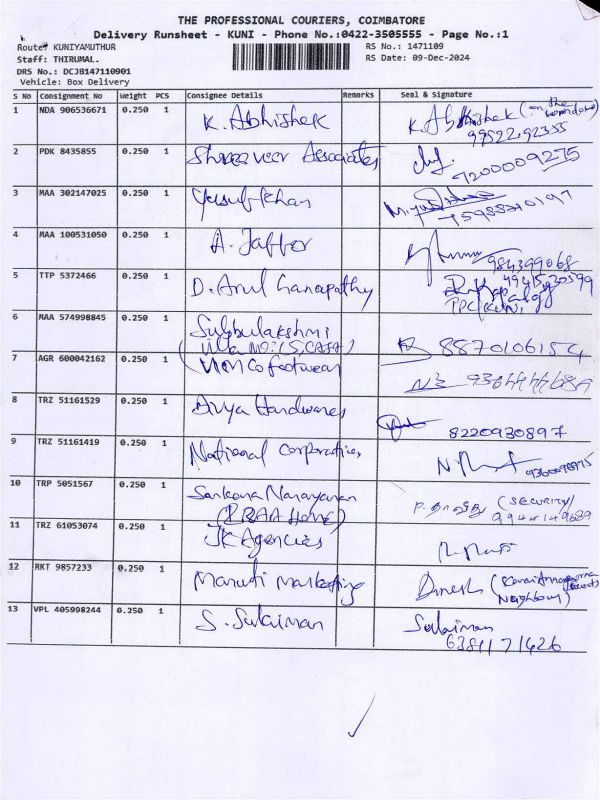 THE PROFESSIONAL COURIERS, COIMBATORE
Delivery Runsheet - KUNI - Phone No.:0422-3505555 - Page No.:1
Route: KUNIYAMUTHUR
RS No.: 1471109
Staff: THIRUMAL.
RS Date: 09-Dec-2024
DRS No.: DCJB147110901
Vehicle: Box Delivery
S No Consignment No Weight PCS Consignee Details Remarks Seal & Signature
1 NDA 906536671 0.250 1 K. Abhishek K. Abhishek (on the
9952292355
2 PDK 8435855 0.250 1 Shreeveer Associates 7200009275
3 MAA 302147025 0.250 1 Yusuf Khan
4 MAA 100531050 0.250 1 A. Jaffer
984399068
5 TTP 5372466 0.250 1 D. Arul Ganapathy
6 MAA 574998845 0.250 1 Subbulakshmi
8870106154
7 AGR 600042162 0.250 1 footwear
8 TRZ 51161529 0.250 1 Divya Hardwares
8220930897
9 TRZ 51161419 0.250 1 National Corporation,
10 TRP 5051567 0.250 1 Sankara Narayanan (Security)
9944149689
11 TRZ 61053074 0.250 1 JK Agencies
12 RKT 9857233 0.250 1 Maruti Marketing Dinesh
Neighbour)
13 VPL 405998244 0.250 1 S. Sulaiman Sulaiman
6381171426